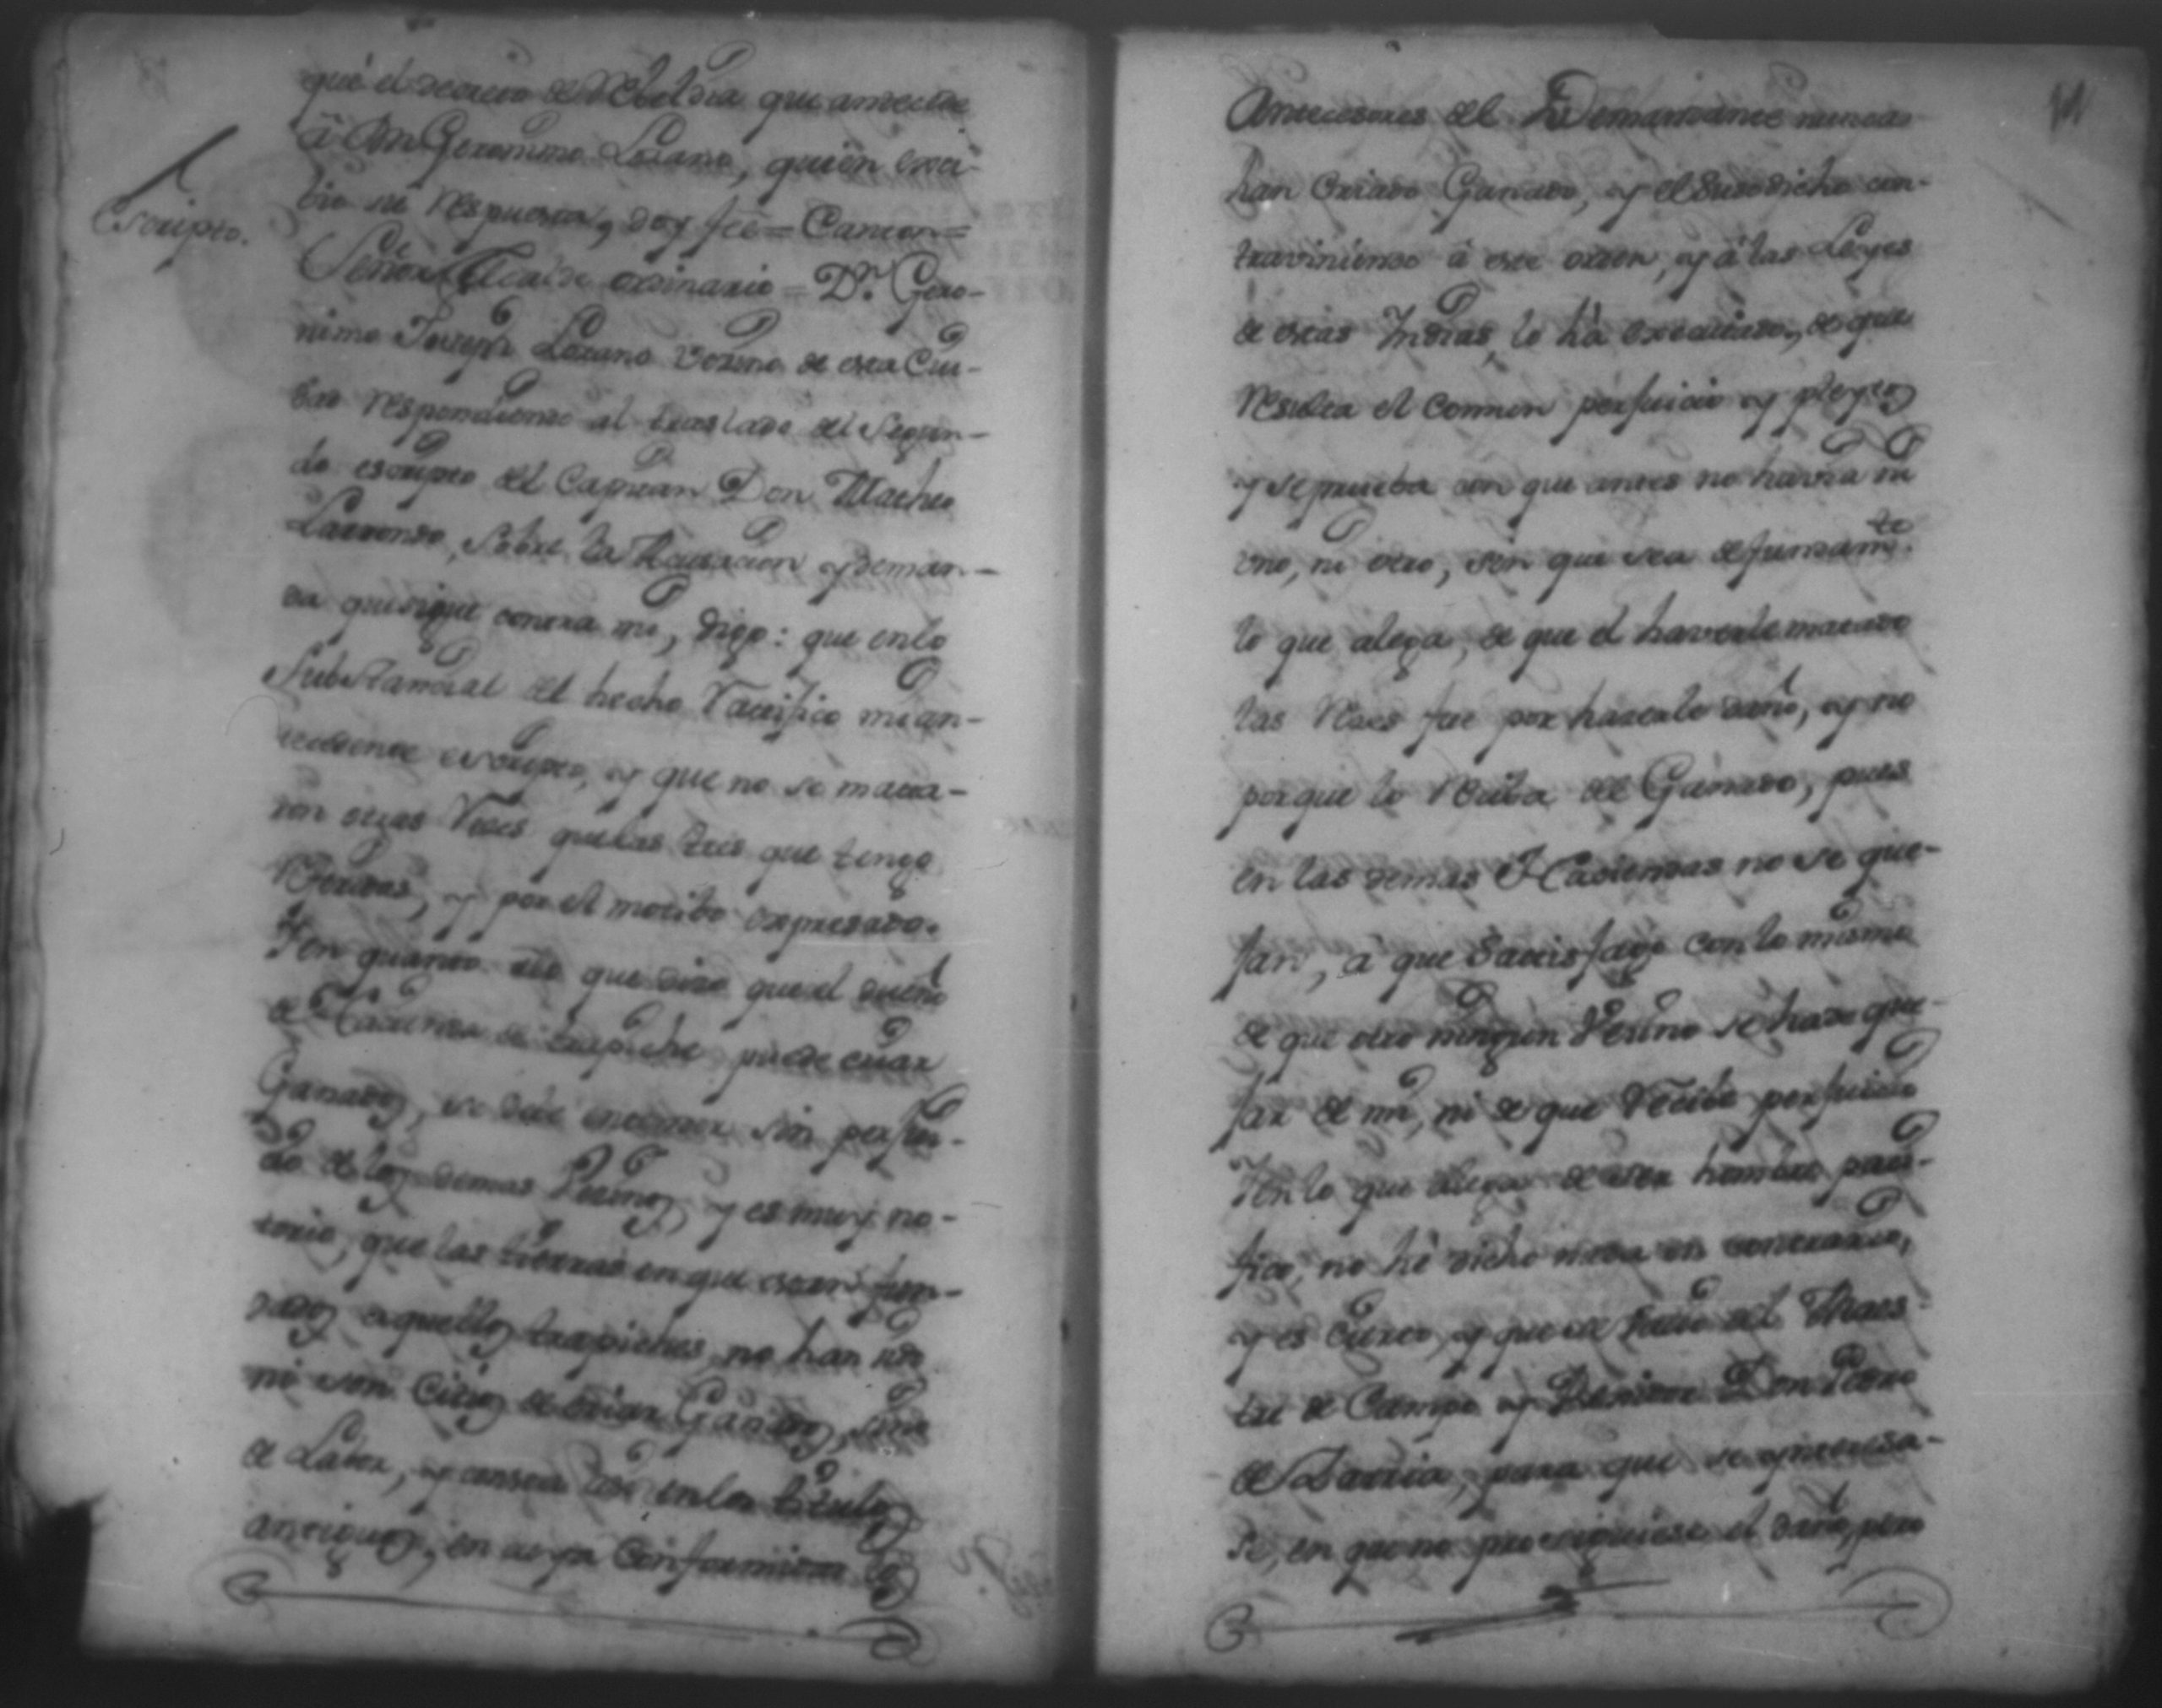 que el decreto de Rebeldia que antecede
à Dn Geronimo Lozano, quien exci-
bio su respuesta, doy feè = Cancer =
Escripto.
Señor Alcalde ordinario = Dn. Gero-
nimo Joseph Lozano Vezino de esta Ciu-
dad respondiendo al traslado del Segun-
do escripto del Capitan Don Matheo
Larrondo, sobre la Acusacion y deman-
da que sigue contra mi, digo: que en lo
Substancial del hecho Ratifico mi an-
tecedente escripto, y que no se mata-
ron otras Reses que las tres que tengo
Referidas, y por el motibo expresado.
Y en quanto à lo que dize que el dueño
de Hacienda de trapiche puede criar
Ganados, se debe entender sin perjui-
cio de los demas Vezinos, y es muy no-
torio, que las tierras en que estan fun-
dados aquellos trapiches, no han sido
ni son Citios de criar Ganados, sino
de Labor, y consta assi en los titulos
antiguos, en cuya Conformidad los
11
Antecesores del Demandante nunca
han Criado Ganado, y el Susodicho con-
traviniendo à este orden, y à las Leyes
de estas Indias, lo hà executado, de que
Resulta el Comun perjuicio y pleytos
y se prueba con que antes no havia ni
uno, ni otro, sin que sea de fundamto.
lo que alega, de que el haverle matado
las Reses fue por hazerle daño, y no
porque lo Reciba del Ganado, pues
en las demas Haciendas no se que-
jan, à que Satisfago con lo mismo
de que otro ningun Vezino se haze que-
jar de mi, ni de que Recibe perjuicio
Y en lo que alega de ser hombre paci-
fico, no hè dicho nada en contrario,
y es Cierto, y que se hizo del Maes-
tre de Campo y Don Pedro
de para que se
se, en que no prosiguiese el daño, pero